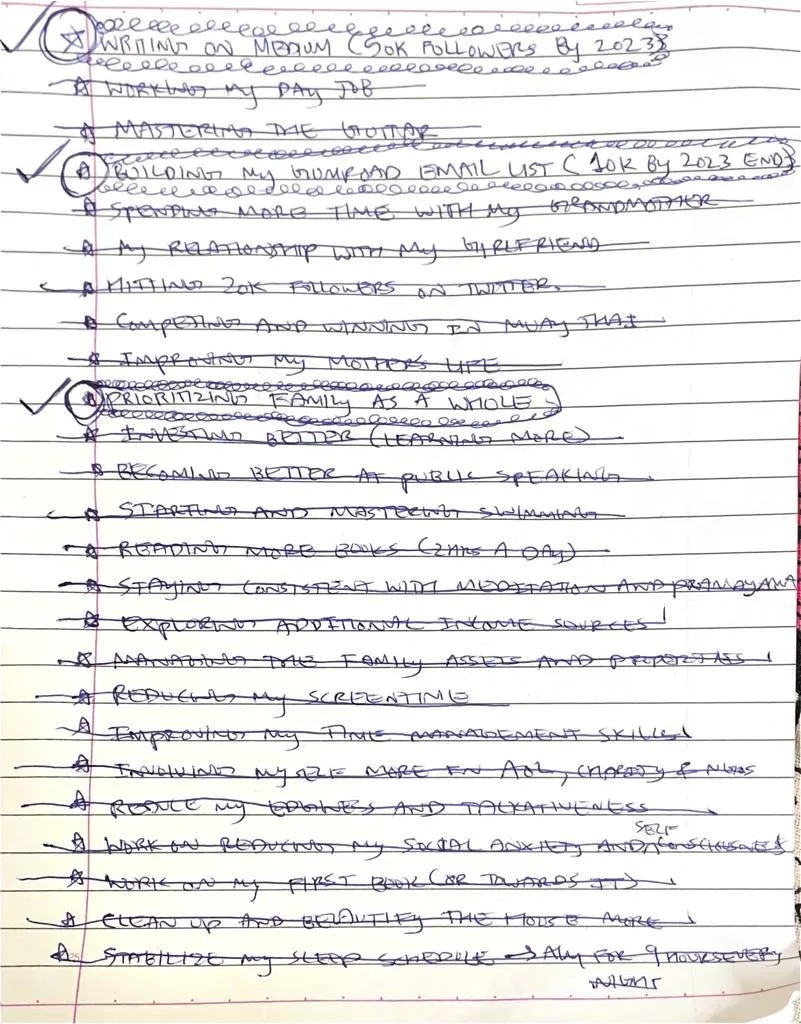 WRITING ON MEDIUM (50K FOLLOWERS BY 2023)
WORKING MY DAY JOB
MASTERING THE GUITAR
BUILDING MY GUMROAD EMAIL LIST (10K BY 2023 END)
SPENDING MORE TIME WITH MY GRANDMOTHER
MY RELATIONSHIP WITH MY GIRLFRIEND
HITTING 20K FOLLOWERS ON TWITTER.
COMPETING AND WINNING IN MUAY THAI
IMPROVING MY MOTHERS LIFE
PRIORITIZING FAMILY AS A WHOLE
INVESTING BETTER (LEARNING MORE)
BECOMING BETTER AT PUBLIC SPEAKING
STARTING AND MASTERING SWIMMING
READING MORE BOOKS (2HRS A DAY)
STAYING CONSISTENT WITH MEDITATION AND PRANAYAMA
EXPLORING ADDITIONAL INCOME SOURCES
MANAGING THE FAMILY ASSETS AND PROPERTIES
REDUCING MY SCREENTIME
IMPROVING MY TIME MANAGEMENT SKILLS
INVOLVING MYSELF MORE IN AOL, CHARITY & NGOS
REDUCE MY EDGINESS AND TALKATIVENESS
WORK ON REDUCING MY SOCIAL ANXIETY AND SELF CONSCIOUSNESS
WORK ON MY FIRST BOOK (OR TOWARDS IT)
CLEAN UP AND BEAUTIFY THE HOUSE MORE
STABILIZE MY SLEEP SCHEDULE → FOR 9 HOURS EVERY
NIGHT